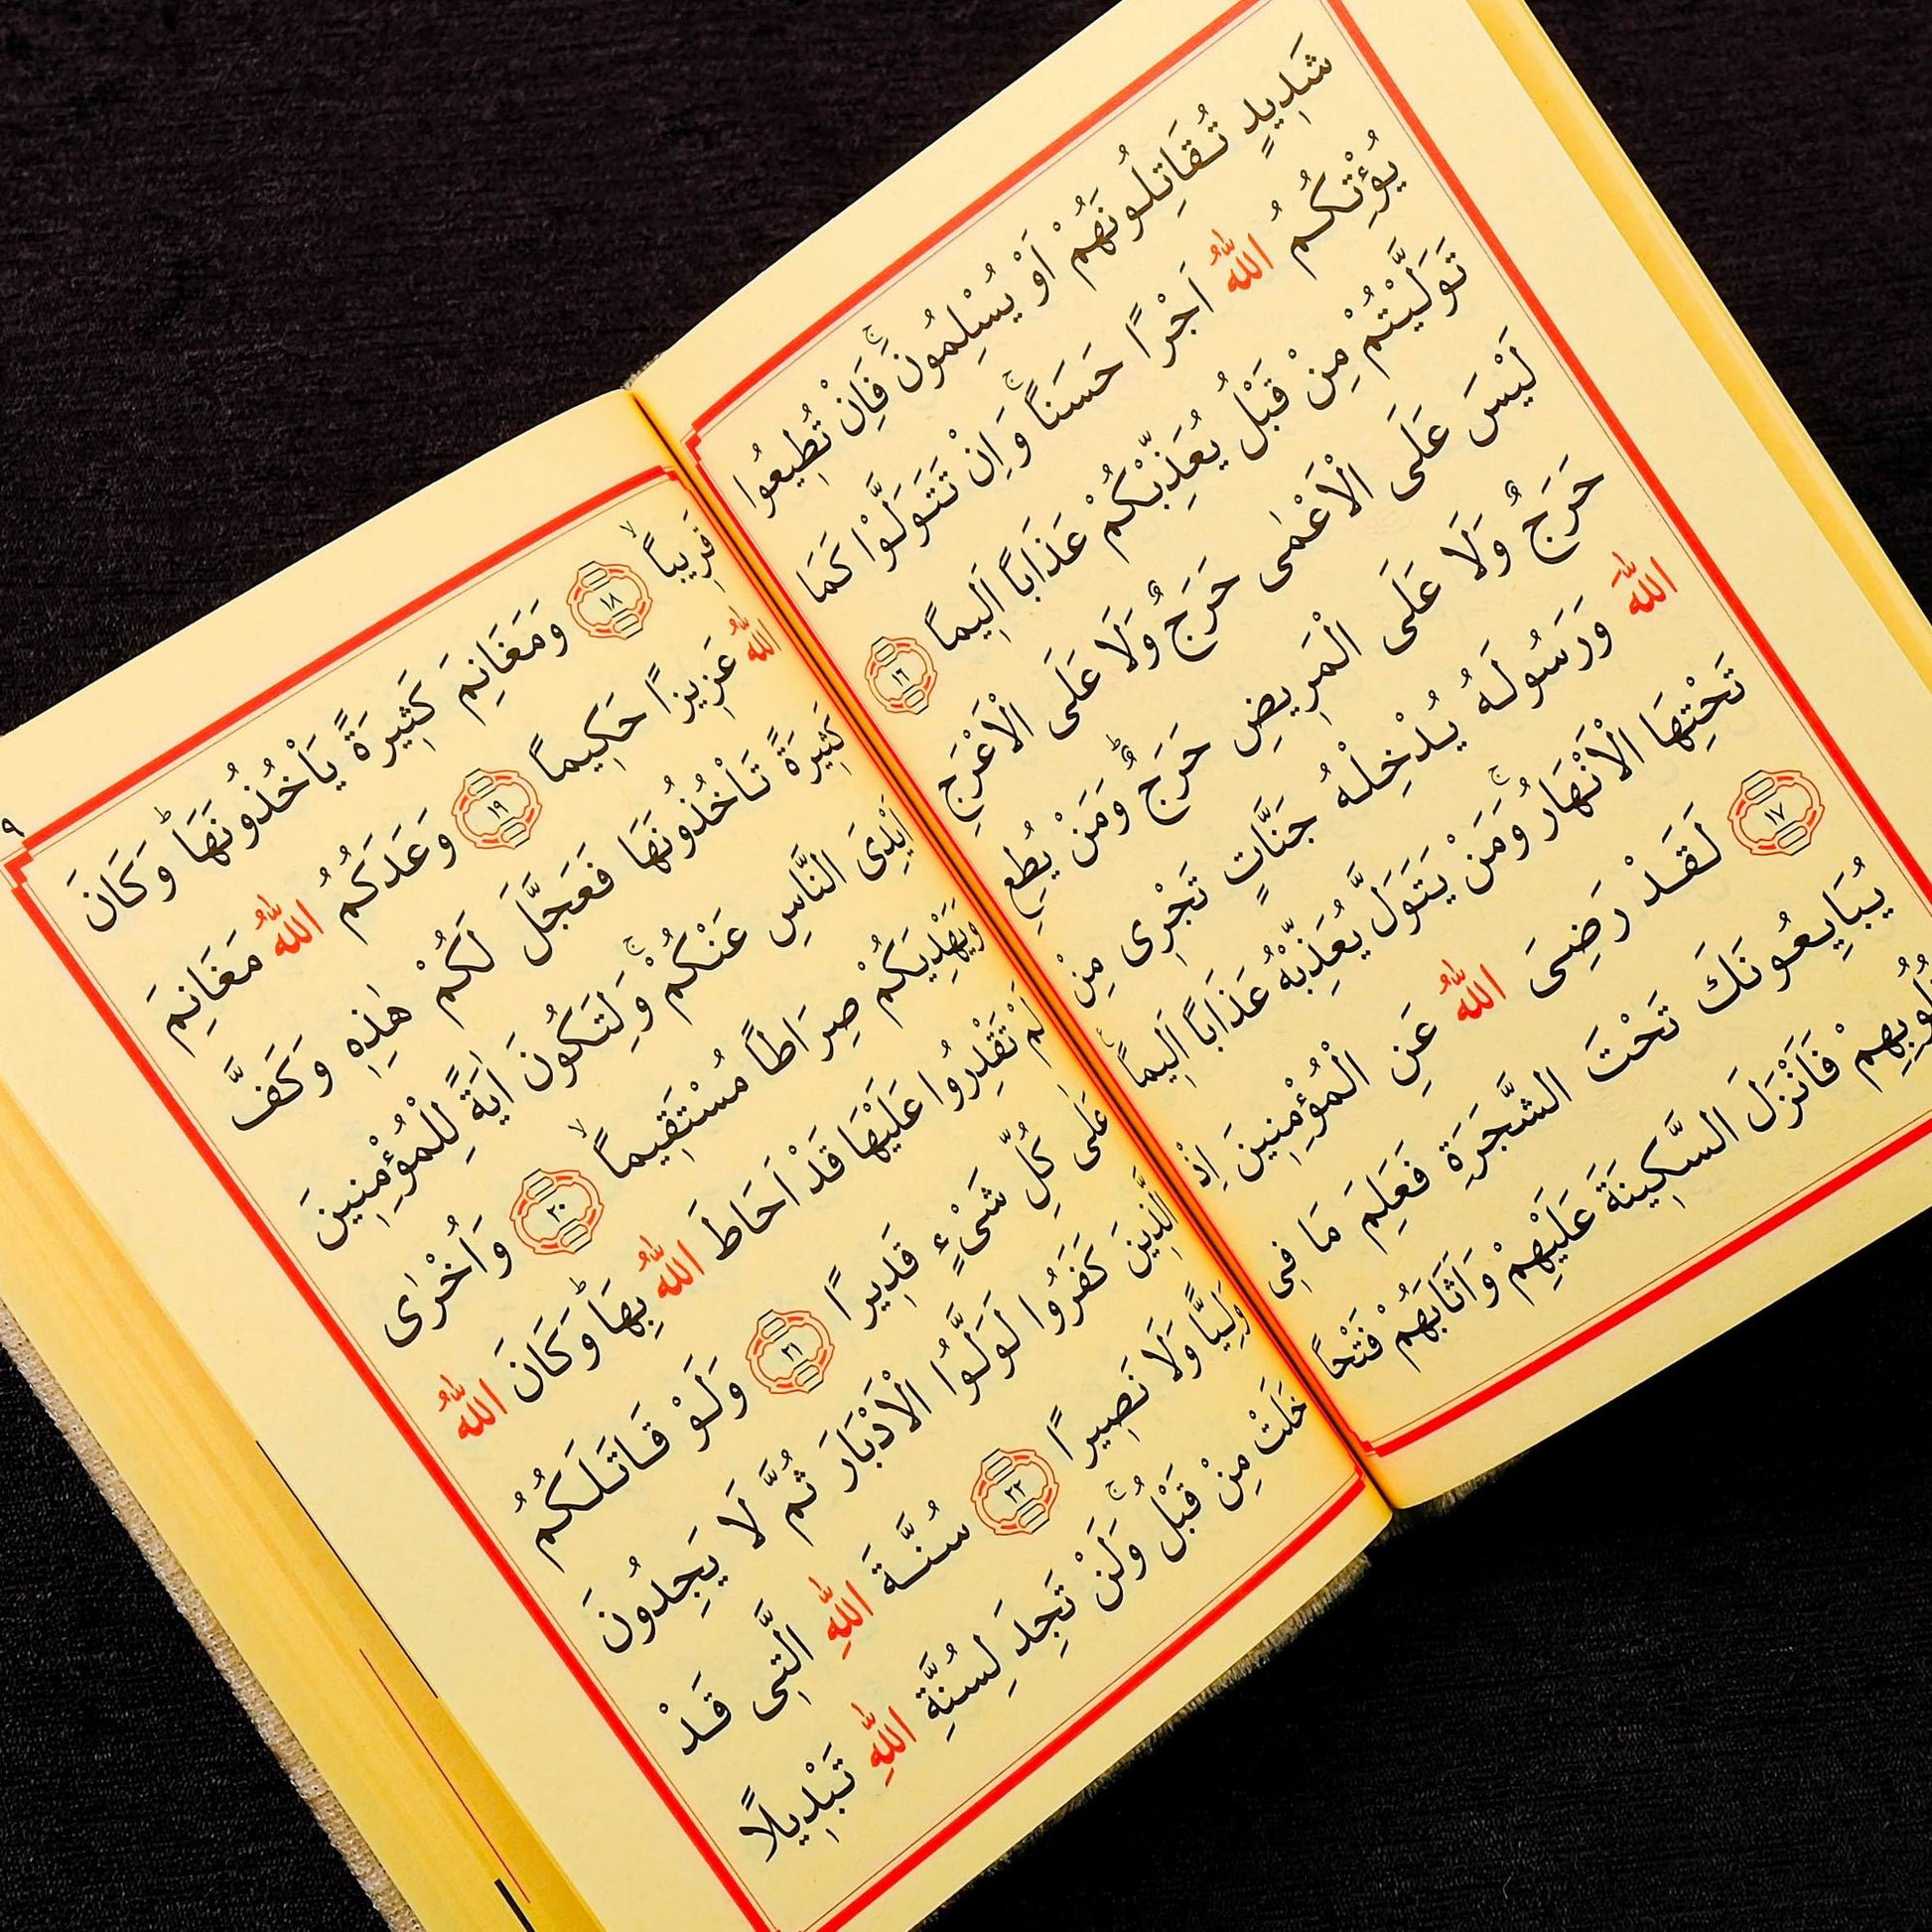 شَدِيدٍ تُقَاتِلُونَهُمْ اَوْ يُسْلِمُونَۚ فَاِنْ تُطِيعُوا
يُؤْتِكُمُ اللّٰهُ اَجْرًا حَسَنًاۚ وَاِنْ تَتَوَلَّوْا كَمَا
تَوَلَّيْتُمْ مِنْ قَبْلُ يُعَذِّبْكُمْ عَذَابًا اَلِيمًا ١٦
لَيْسَ عَلَى الْاَعْمٰى حَرَجٌ وَلَا عَلَى الْاَعْرَجِ
حَرَجٌ وَلَا عَلَى الْمَرِيضِ حَرَجٌۜ وَمَنْ يُطِعِ
اللّٰهَ وَرَسُولَهُ يُدْخِلْهُ جَنَّاتٍ تَجْرِى مِنْ
تَحْتِهَا الْاَنْهَارُۚ وَمَنْ يَتَوَلَّ يُعَذِّبْهُ عَذَابًا اَلِيمًا
١٧ لَقَدْ رَضِىَ اللّٰهُ عَنِ الْمُؤْمِنِينَ اِذْ
يُبَايِعُونَكَ تَحْتَ الشَّجَرَةِ فَعَلِمَ مَا فِى
فَاَنْزَلَ السَّكِينَةَ عَلَيْهِمْ وَاَثَابَهُمْ فَتْحًا
قَرِيبًاۙ ١٨ وَمَغَانِمَ كَثِيرَةً يَأْخُذُونَهَاۜ وَكَانَ
اللّٰهُ عَزِيزًا حَكِيمًا ١٩ وَعَدَكُمُ اللّٰهُ مَغَانِمَ
كَثِيرَةً تَأْخُذُونَهَا فَعَجَّلَ لَكُمْ هٰذِهِ وَكَفَّ
اَيْدِىَ النَّاسِ عَنْكُمْۚ وَلِتَكُونَ اٰيَةً لِلْمُؤْمِنِينَ
وَيَهْدِيَكُمْ صِرَاطًا مُسْتَقِيمًاۙ ٢٠ وَاُخْرٰى
لَمْ تَقْدِرُوا عَلَيْهَا قَدْ اَحَاطَ اللّٰهُ بِهَاۜ وَكَانَ اللّٰهُ
عَلٰى كُلِّ شَىْءٍ قَدِيرًا ٢١ وَلَوْ قَاتَلَكُمُ
الَّذِينَ كَفَرُوا لَوَلَّوُا الْاَدْبَارَ ثُمَّ لَا يَجِدُونَ
وَلِيًّا وَلَا نَصِيرًا ٢٢ سُنَّةَ اللّٰهِ الَّتِى قَدْ
خَلَتْ مِنْ قَبْلُۚ وَلَنْ تَجِدَ لِسُنَّةِ اللّٰهِ تَبْدِيلًا